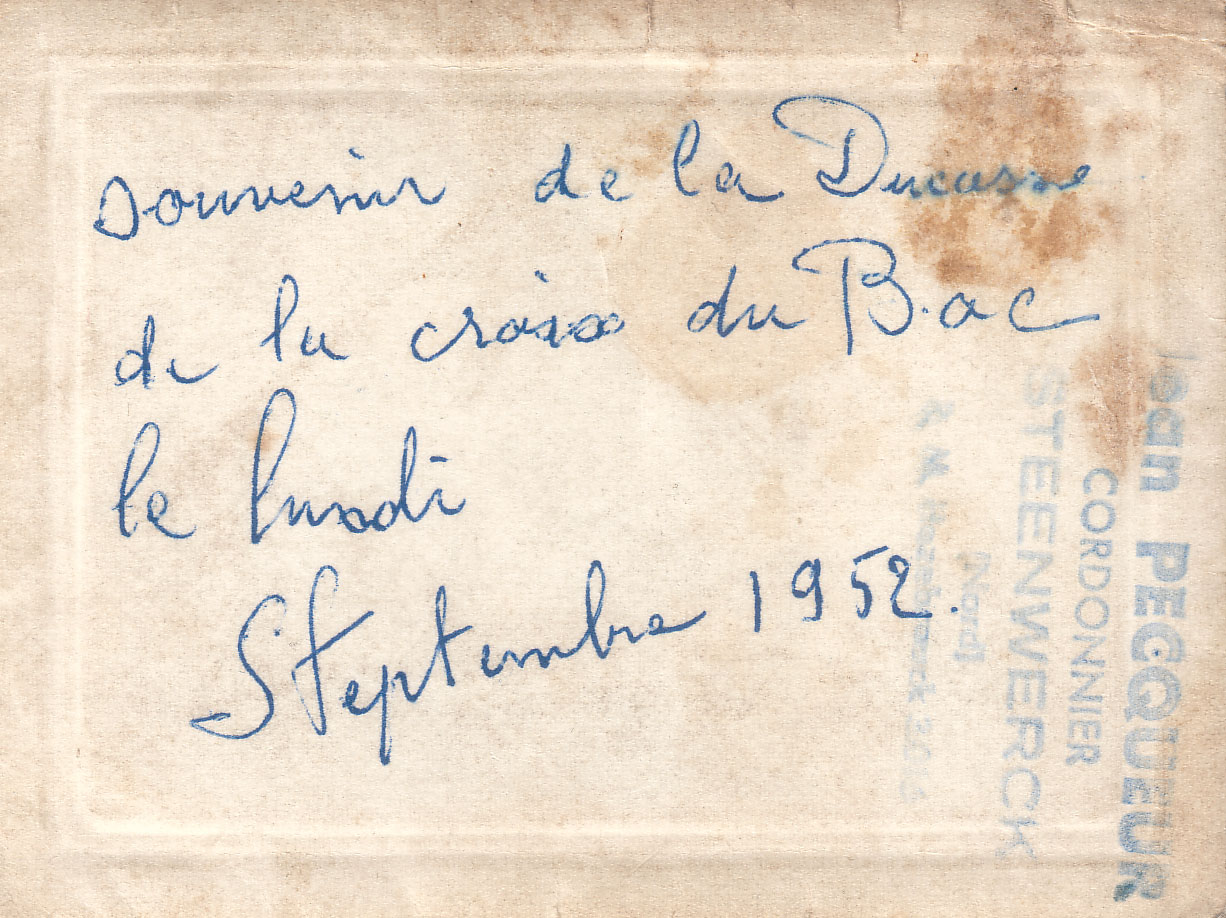 souvenir de la Ducasse
de la croix du Bac
le lundi
STeptembre 1952.
Jean PECQUEUR
CORDONNIER
STEENWERCK
Nord
R. M. Hazebrouck